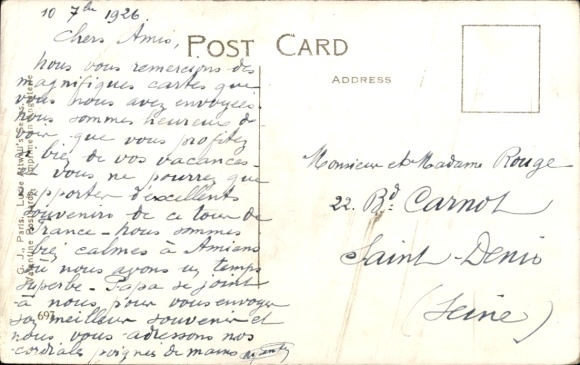 10 7bre 1926
Chers Amis,
POST CARD
ADDRESS
nous vous remercions des
magnifiques cartes que
vous nous avez envoyées
nous sommes heureux de
voir que vous profitez
bien de vos vacances -
vous ne pourrez que
apporter d'excellents
souvenirs de ce tour de
france - nous sommes
bien calmes à Amiens
où nous avons un temps
superbe - Papa se joint
à nous pour vous envoyer
son meilleur souvenir et
nous vous adressons nos
cordiales poignées de mains
Monsieur et Madame Rouge
22. Bd. Carnot
Saint-Denis
(Seine)
697